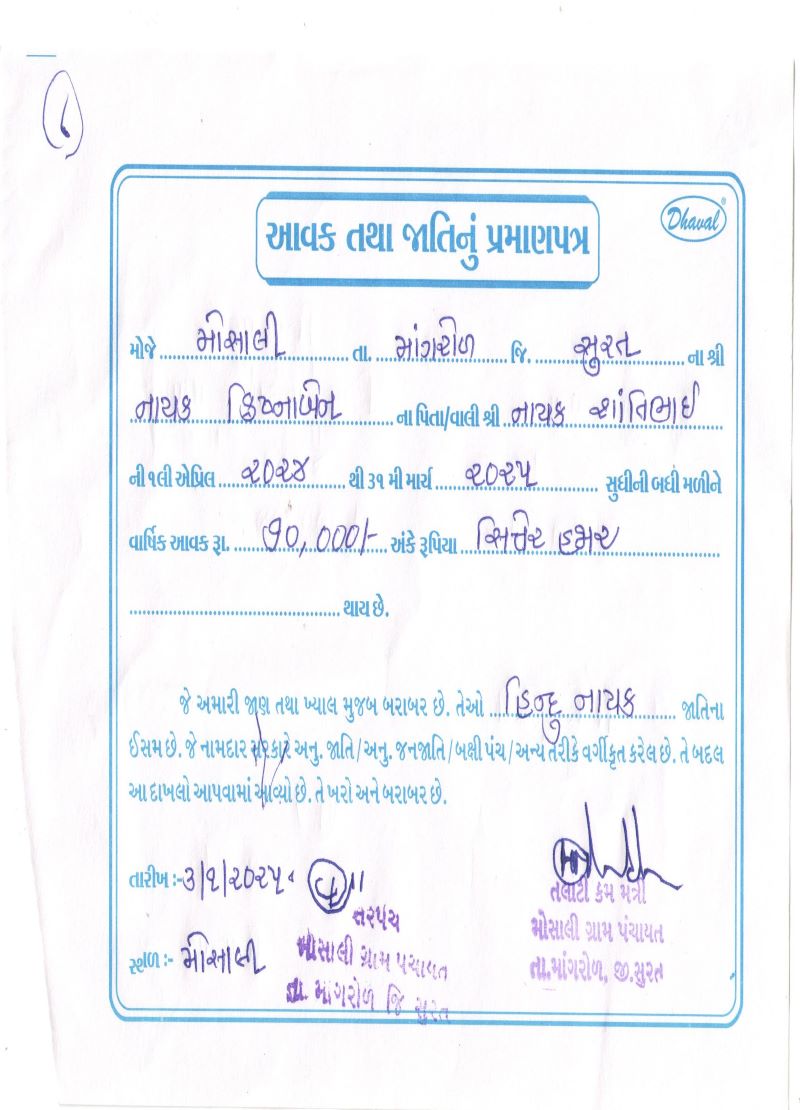 ૬
Dhaval
આવક તથા જાતિનું પ્રમાણપત્ર
મોજે મોસાલી તા. માંગરોળ જિ. સુરત ના શ્રી
નાયક ક્રિષ્નાબેન ના પિતા/વાલી શ્રી નાયક શાંતિભાઈ
ની ૧લી એપ્રિલ ૨૦૨૪ થી ૩૧ મી માર્ચ ૨૦૨૫ સુધીની બધી મળીને
વાર્ષિક આવક રૂા. ૭૦,૦૦૦/- અંકે રૂપિયા સિત્તેર હજાર
થાય છે.
જે અમારી જાણ તથા ખ્યાલ મુજબ બરાબર છે. તેઓ હિન્દુ નાયક જાતિના
ઈસમ છે. જે નામદાર સરકારે અનુ. જાતિ/અનુ. જનજાતિ/બક્ષી પંચ/અન્ય તરીકે વર્ગીકૃત કરેલ છે. તે બદલ
આ દાખલો આપવામાં આવ્યો છે. તે ખરો અને બરાબર છે.
તારીખ :- ૩/૧/૨૦૨૫
સરપંચ
તલાટી કમ મંત્રી
મોસાલી ગ્રામ પંચાયત
મોસાલી ગ્રામ પંચાયત
સ્થળ :- મોસાલી
તા. માંગરોળ જિ સુરત
તા.માંગરોળ, જી.સુરત